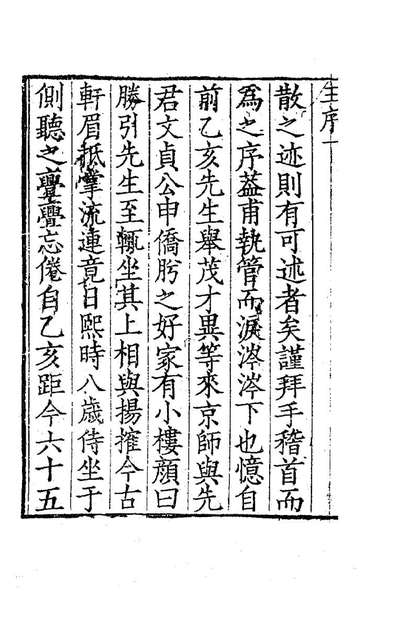 主序一
散之迹則有可述者矣謹拜手稽首而
為之序葢甫執管而淚涔涔下也憶自
前乙亥先生舉茂才異等來京師與先
君文貞公申僑肸之好家有小樓顔曰
勝引先生至輒坐其上相與揚搉今古
軒眉抵掌流連竟日熙時八歲侍坐于
側聽之亹亹忘倦自乙亥距今六十五